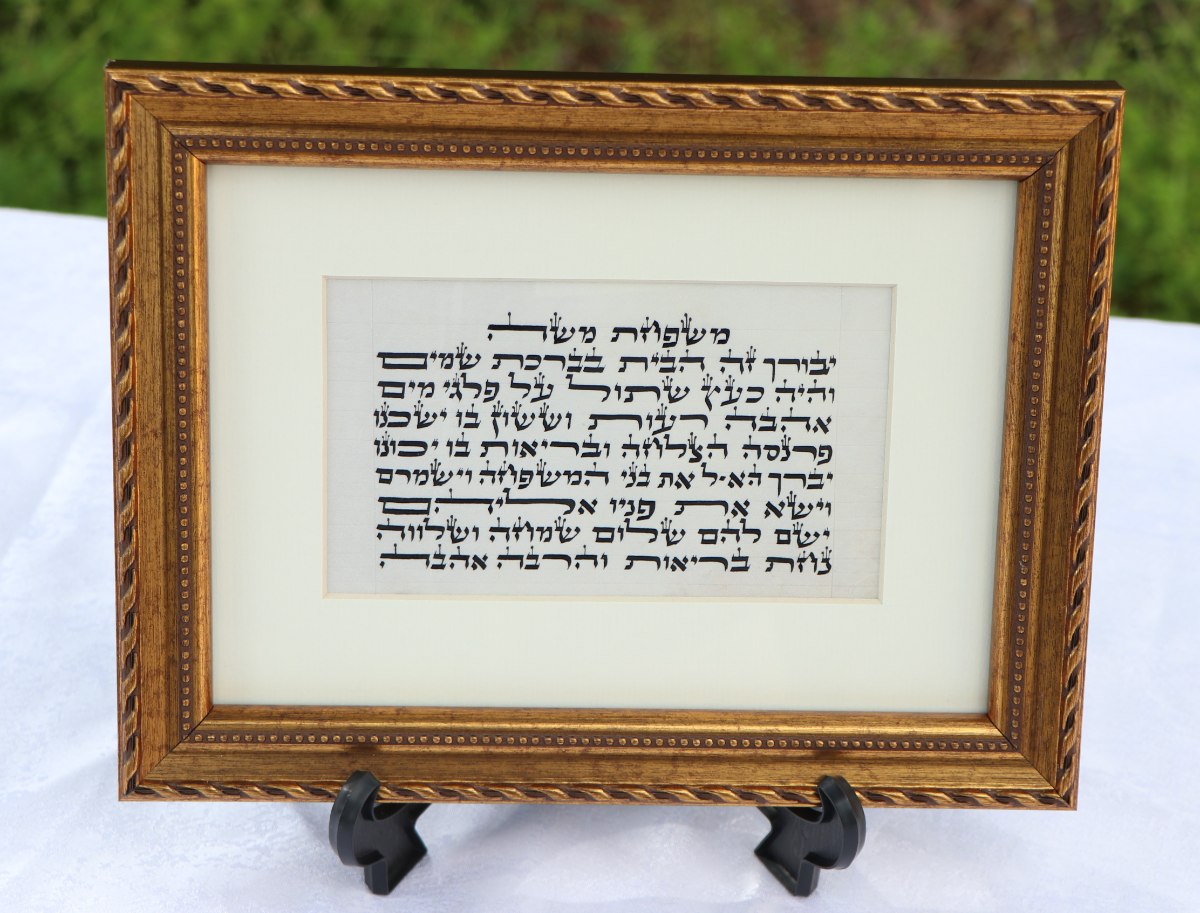 משפחת משה
יבורך זה הבית בברכת שמים
והיה כעץ שתול על פלגי מים
אהבה רעות וששון בו ישכנו
פרנסה הצלחה ובריאות בו יכונו
יברך הא-ל את בני המשפחה וישמרם
וישא את פניו אליהם
ישם להם שלום שמחה ושלווה
נחת בריאות והרבה אהבה